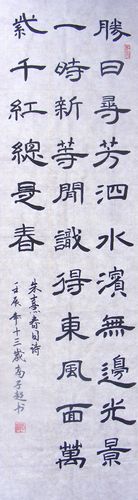 勝日尋芳泗水濱無邊光景
一時新等閒識得東風面萬
紫千紅總是春
朱熹春日诗
壬辰年十三歲高子超书